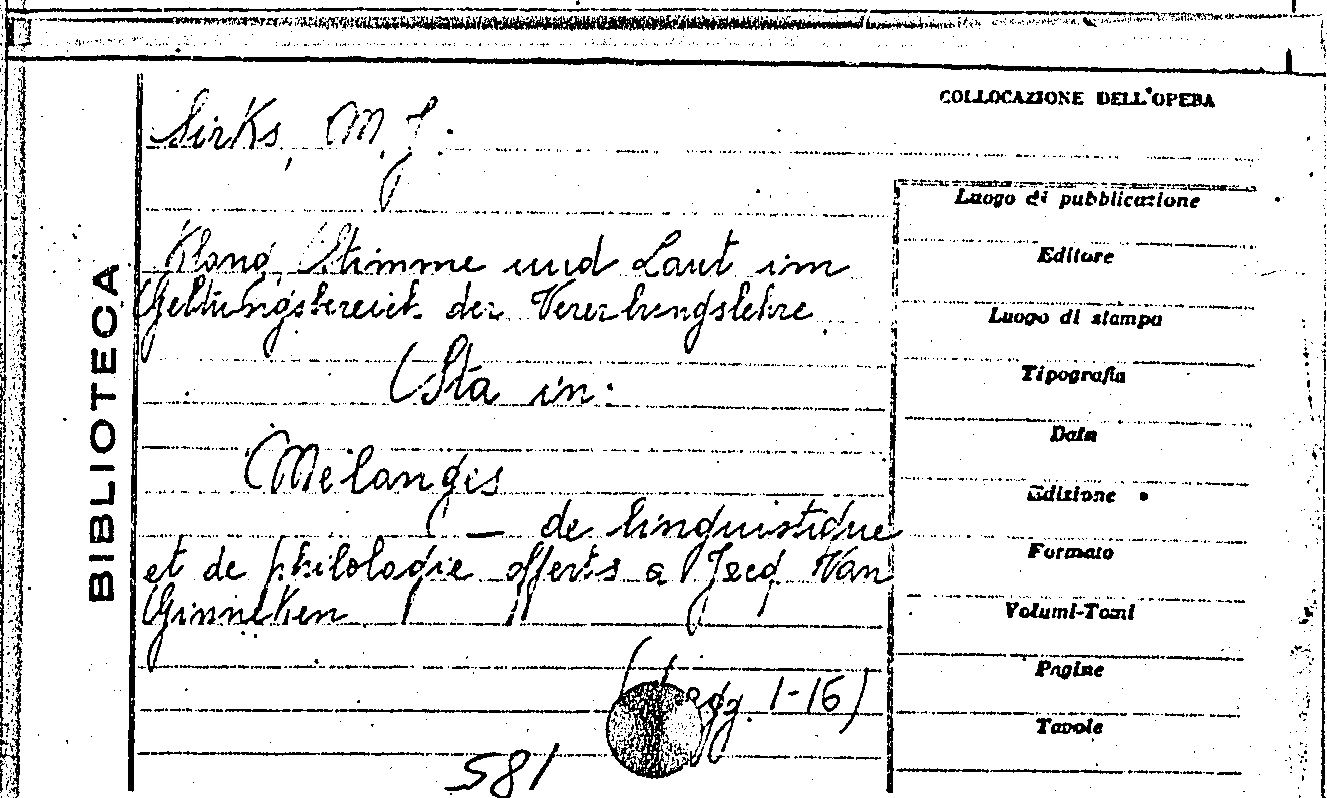 COLLOCAZIONE DELL'OPERA
Sirks, M. J.
Klang, Stimme und Laut im
Geltungsbereich der Vererbungslehre
(Sta in:
Melanges
— de linguistique
et de philologie offerts a Jacq Van
Ginneken
(pagg. 1-16)
581
BIBLIOTECA
Luogo di pubblicazione
Editore
Luogo di stampa
Tipografia
Data
Edizione
Formato
Volumi-Tomi
Pagine
Tavole